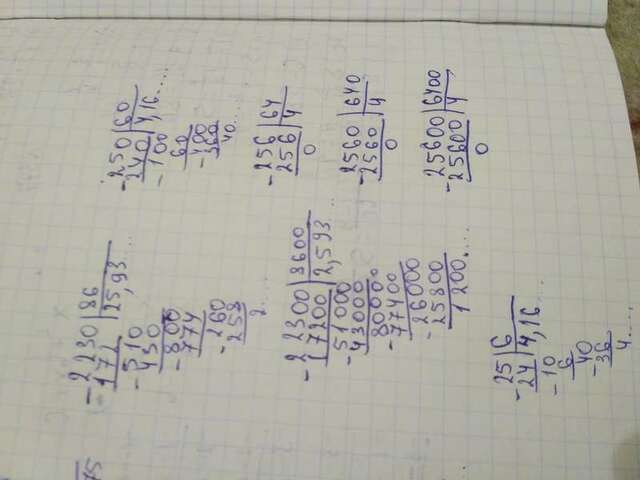 75
- 2230 | 86
172 | 25,93...
- 510
430
- 800
774
- 260
258
2...
- 22300 | 8600
17200 | 2,593...
- 51000
43000
- 80000
77400
- 26000
25800
1200....
- 25 | 6
24 | 4,16...
- 10
6
- 40
36
4....
- 250 | 60
240 | 4,16....
- 100
60
- 400
360
40...
- 256 | 64
256 | 4
0
- 2560 | 640
2560 | 4
0
- 25600 | 6400
25600 | 4
0